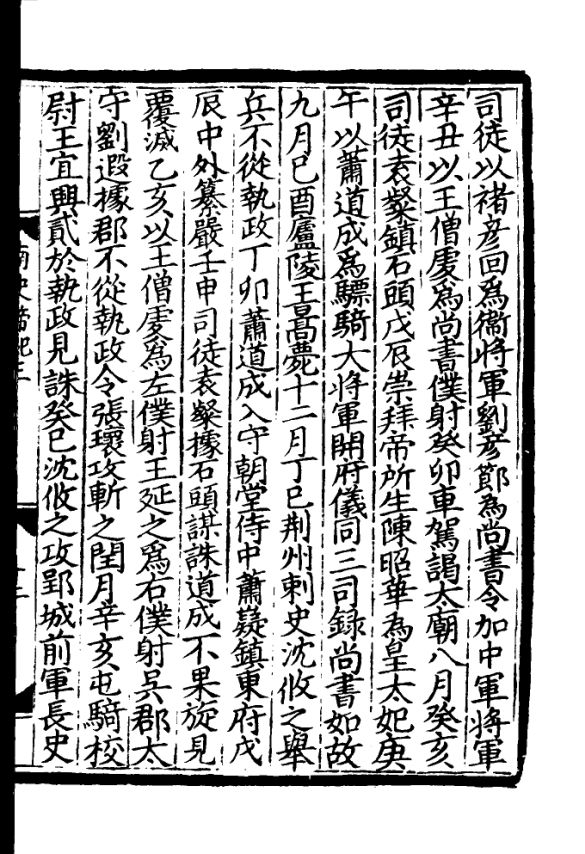 司徒以褚彦回爲衞將軍劉彦節爲尚書令加中軍將軍
辛丑以王僧虔爲尚書僕射癸卯車駕謁太廟八月癸亥
司徒袁粲鎮石頭戊辰崇拜帝所生陳昭華為皇太妃庚
午以蕭道成爲驃騎大將軍開府儀同三司録尚書如故
九月巳酉廬陵王暠薨十二月丁巳荆州刺史沈攸之舉
兵不從執政丁卯蕭道成入守朝堂侍中蕭嶷鎮東府戊
辰中外纂嚴壬申司徒袁粲據石頭謀誅道成不果旋見
覆滅乙亥以王僧虔爲左僕射王延之爲右僕射呉郡太
守劉遐據郡不從執政令張瓌攻斬之閏月辛亥屯騎校
尉王宜興貳於執政見誅癸巳沈攸之攻郢城前軍長史